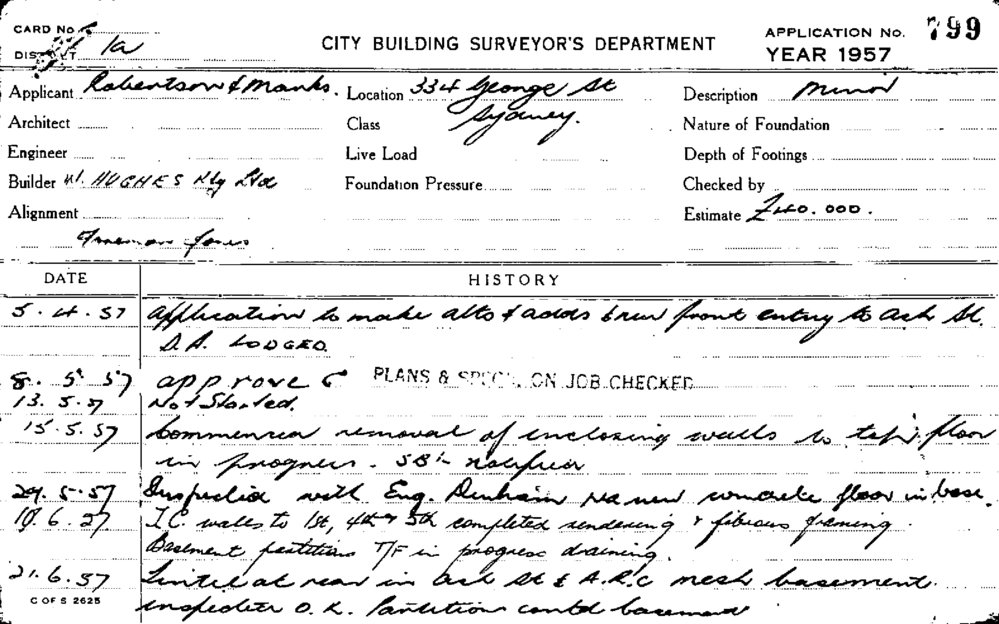 CARD No
DISTRICT 1a
CITY BUILDING SURVEYOR'S DEPARTMENT
APPLICATION No. 799
YEAR 1957
Applicant Robertson & Marks. Location 334 George St Description Minor
Sydney.
Architect Class Nature of Foundation
Engineer Live Load Depth of Footings
Builder W. HUGHES Pty Ltd Foundation Pressure Checked by
Alignment Estimate £40.000.
Freeman Jones
DATE HISTORY
5.4.57 Application to make alts & adds & new front entry to Ash St.
D.A. LODGED.
8.5.57 approved PLANS & SPEC'N ON JOB CHECKED
13.5.57 Not Started.
15.5.57 Commenced removal of enclosing walls to top floor
in progress. notified
29.5.57 Inspection with Eng. Denham re new concrete floor in base.
19.6.57 T.C. walls to 1st, 4th & 5th completed rendering & fibrous framing.
Basement partitions T/F in progress draining.
21.6.57 Lintel at rear in Ash St & A.R.C mesh basement.
C OF S 2625
inspected O.K. Partition contd basement